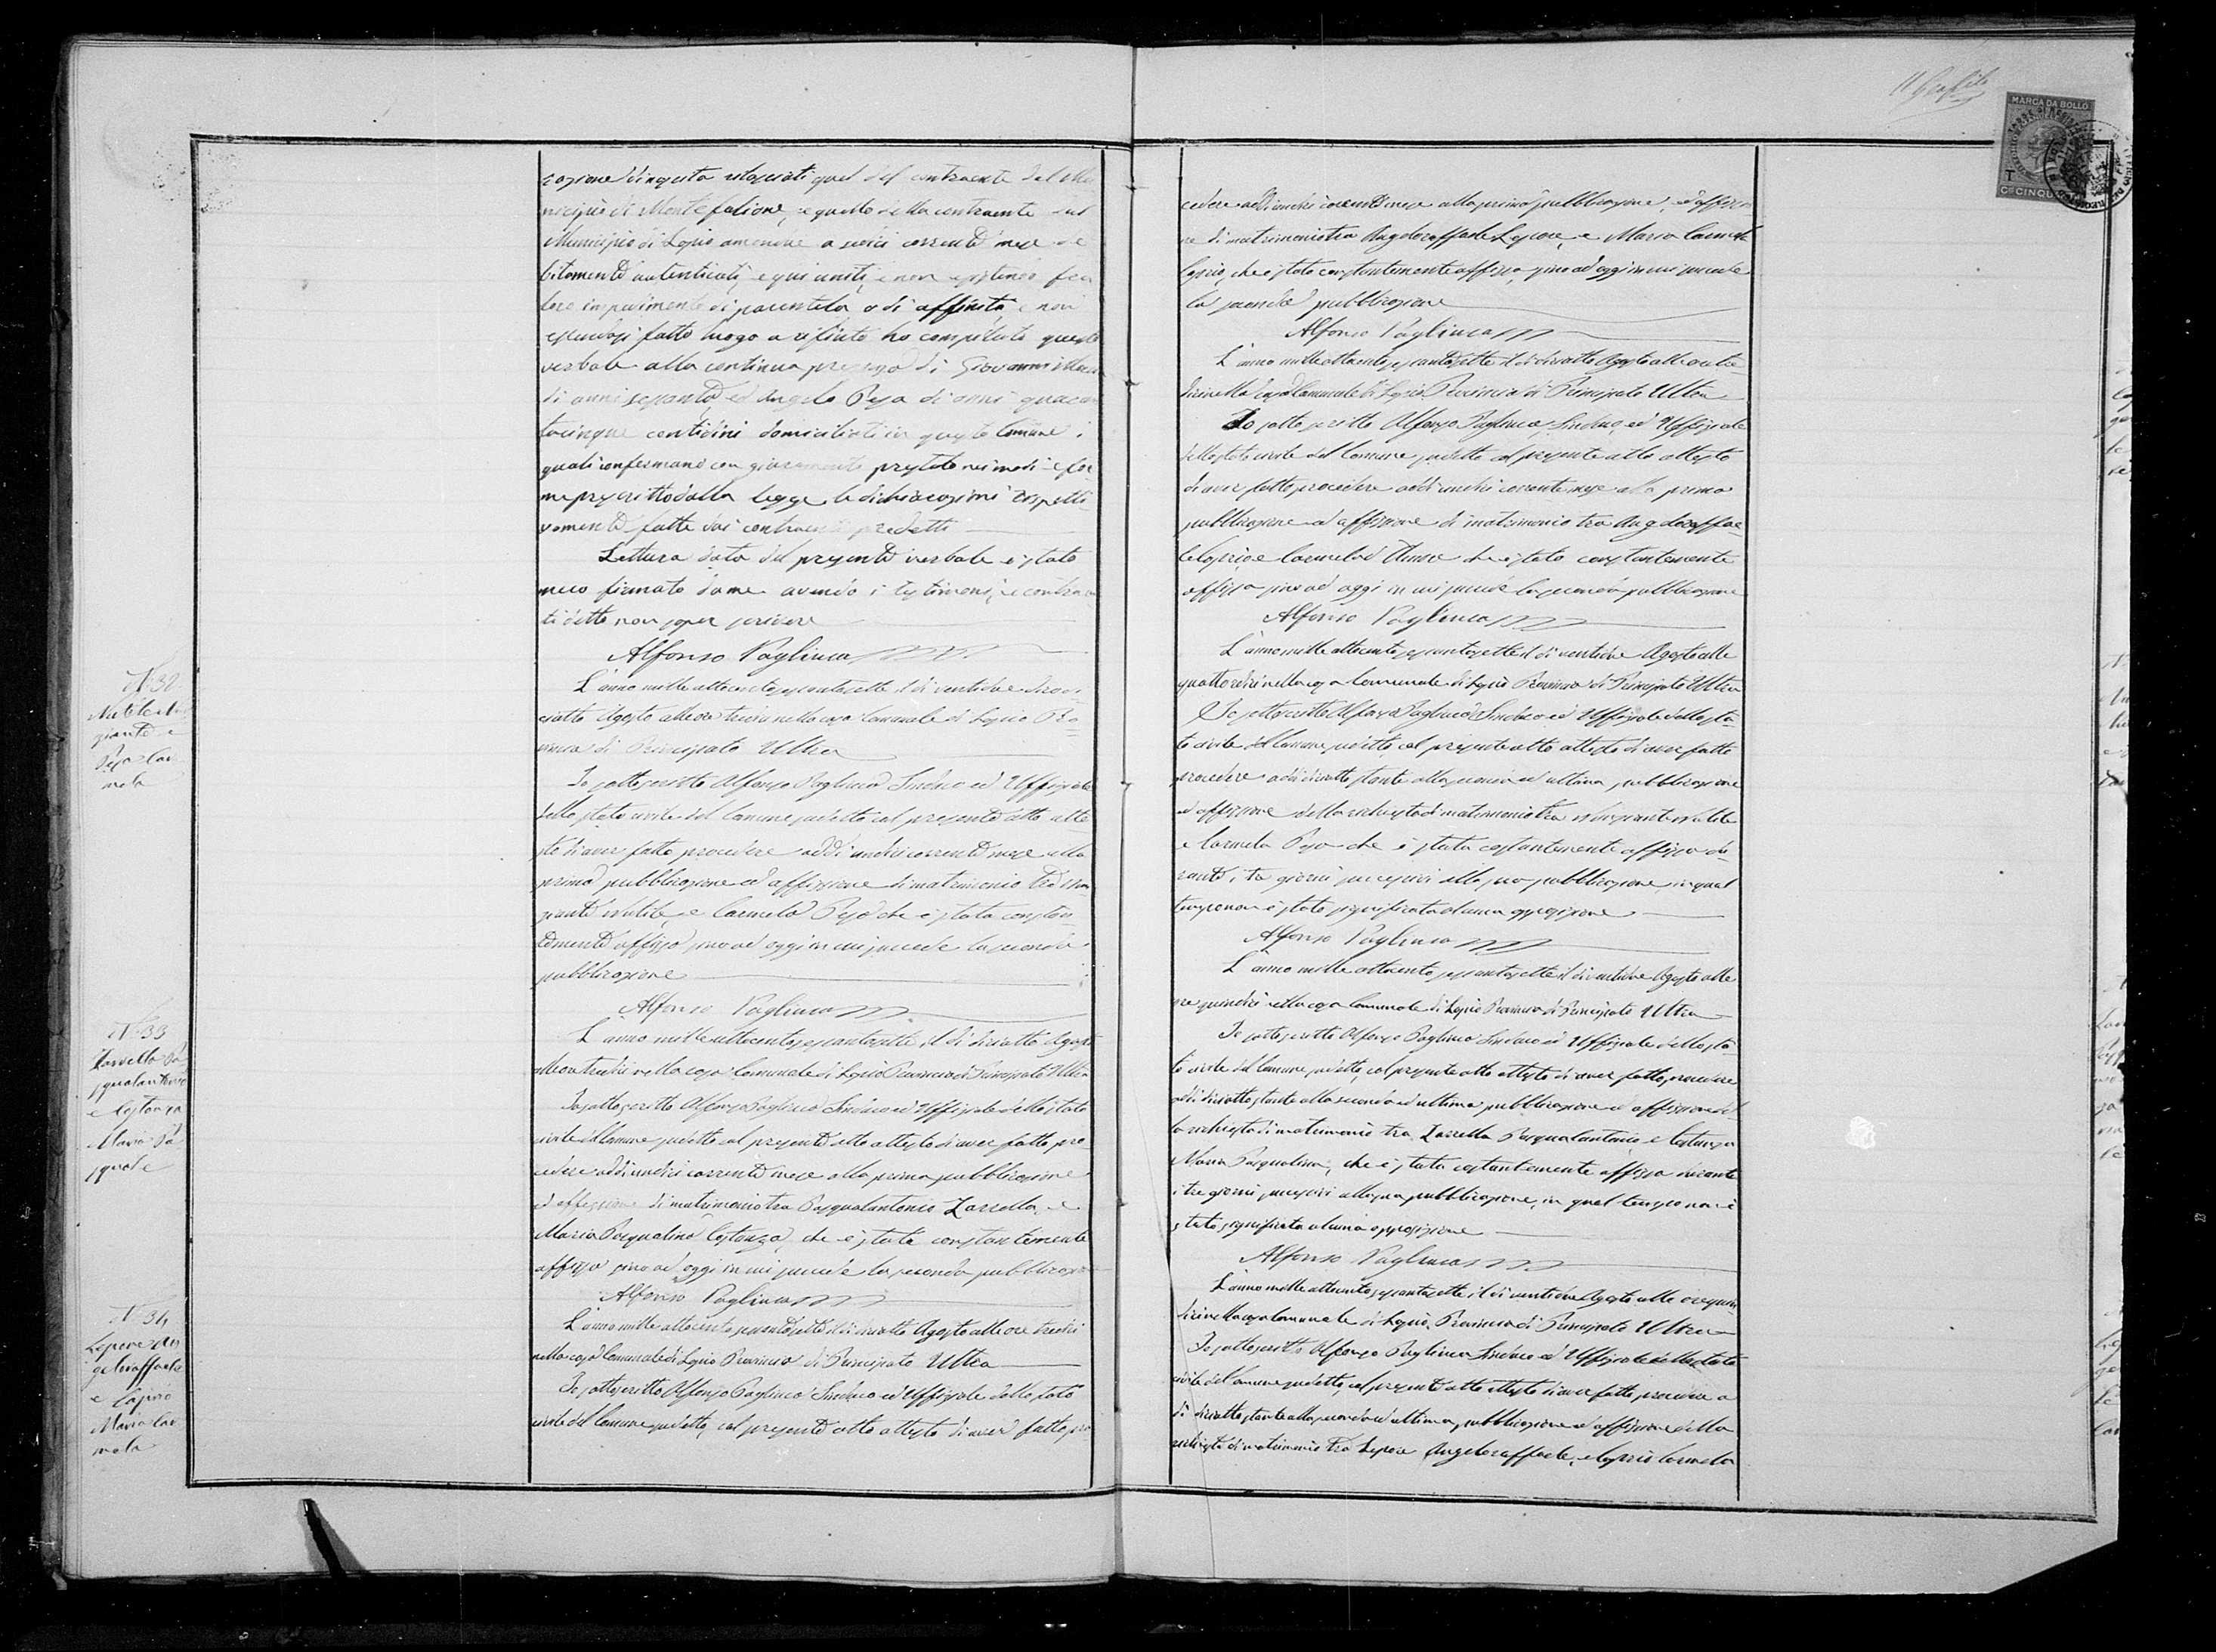 razione di nascita rilasciati quel del contraente dal Mu
nicipio di Montefalione, e quello della contraente dal
Municipio di Lapio amendue a sedici corrente mese de
bitamente autenticati, e qui uniti, e non esistendo fra
loro impedimento di parentela o di affinità, e non
essendosi fatto luogo a rifiuto ho compilato questo
verbale alla continua presenza di Giovanni
di anni sessanta, ed Angelo Pesa di anni quaran
tacinque contadini domiciliati in questo Comune i
quali confermano con giuramento prestato nei modi e for
me prescritto dalla legge le dichiarazioni rispetti
vamente fatte dai contraenti predetti
Lettura data del presente verbale è stato
meco firmato da me avendo i testimoni, e contraen
ti detto non saper scrivere
Alfonso Pagliuca
N. 32
Natile
ziante e
Pesa Car
mela
L'anno mille ottocento sessantasette il dì
Agosto alle ore tredici nella casa Comunale di Lapio Pro
vincia di Principato Ultra
Io sottoscritto Alfonso Pagliuca Sindaco ed Uffiziale
dello stato civile del Comune sudetto col presente atto atte
sto di aver fatto procedere addì undici corrente mese alla
prima pubblicazione ed affissione di matrimonio tra
ziante Natile, e Carmela Pesa che è stata costan
temente affissa sino ad oggi in cui succede la seconda
pubblicazione
Alfonso Pagliuca
N. 33
Zarrella Pa
squalantonio
e Costanza
Maria Pa
squale
L'anno mille ottocento sessantasette, il dì diciotto Agosto
alle ore tredici nella casa Comunale di Lapio Provincia di Principato Ultra
Io sottoscritto Alfonso Pagliuca Sindaco ed Uffiziale dello stato
civile del Comune sudetto col presente atto attesto di aver fatto pro
cedere addì undici corrente mese alla prima pubblicazione
ed affissione di matrimonio tra Pasqualantonio Zarrella, e
Maria Pasqualina Costanza, che è stata constantemente
affissa sino ad oggi in cui succede la seconda pubblicazione
Alfonso Pagliuca
N. 34
Lepore An
geloraffaele
e Caprio
Maria Car
mela
L'anno mille ottocento sessantasette il dì diciotto Agosto alle ore tredici
nella casa Comunale di Lapio Provincia di Principato Ultra
Io sottoscritto Alfonso Pagliuca Sindaco ed Uffiziale dello stato
civile del Comune sudetto, col presente atto attesto di aver fatto pro
MARCA DA BOLLO
T
CINQU
cedere addì undici corrente mese alla prima pubblicazione, ed affissio
ne di matrimonio tra Angeloraffaele Lepore, e Maria Carmela
Caprio, che è stata constantemente affissa, sino ad oggi in cui succede
la seconda pubblicazione
Alfonso Pagliuca
L'anno mille ottocento sessantasette il dì diciotto Agosto alle ore tre
dici nella casa Comunale di Lapio Provincia di Principato Ultra
Io sottoscritto Alfonso Pagliuca, Sindaco, ed Uffiziale
dello stato civile del Comune sudetto col presente atto attesto
di aver fatto procedere addì undici corrente mese alla prima
pubblicazione ed affissione di matrimonio tra Angeloraffae
le Caprio e Carmela che è stata constantemente
affissa sino ad oggi in cui succede la seconda pubblicazione
Alfonso Pagliuca
L'anno mille ottocento sessantasette il dì ventidue Agosto alle
quattordici nella casa Comunale di Lapio Provincia di Principato Ultra
Io sottoscritto Alfonso Pagliuca Sindaco ed Uffiziale dello sta
to civile del Comune sudetto, col presente atto attesto di aver fatto
procedere addì diciotto stante alla seconda ed ultima pubblicazione
ed affissione della richiesta di matrimonio tra Natile
e Carmela Pesa che è stata costantemente affissa du
rante i tre giorni successivi alla sua pubblicazione, in qual
tempo non è stata significata alcuna opposizione
Alfonso Pagliuca
L'anno mille ottocento sessantasette il dì ventidue Agosto alle
ore quindici nella casa Comunale di Lapio Provincia di Principato Ultra
Io sottoscritto Alfonso Pagliuca Sindaco ed Uffiziale dello sta
to civile del Comune sudetto, col presente atto attesto di aver fatto procedere
addì diciotto stante alla seconda ed ultima pubblicazione ed affissione del
la richiesta di matrimonio tra Zarrella Pasqualantonio e Costanza
Maria Pasqualina, che è stata costantemente affissa durante
i tre giorni successivi alla sua pubblicazione, in qual tempo non è
stata significata alcuna opposizione
Alfonso Pagliuca
L'anno mille ottocento sessantasette, il dì ventidue Agosto alle ore quin
dici nella casa Comunale di Lapio, Provincia di Principato Ultra
Io sottoscritto Alfonso Pagliuca Sindaco ed Uffiziale dello stato
civile del Comune sudetto, col presente atto attesto di aver fatto procedere a
dì diciotto stante alla seconda ed ultima pubblicazione ed affissione della
richiesta di matrimonio tra Lepore Angeloraffaele, e Caprio Carmela